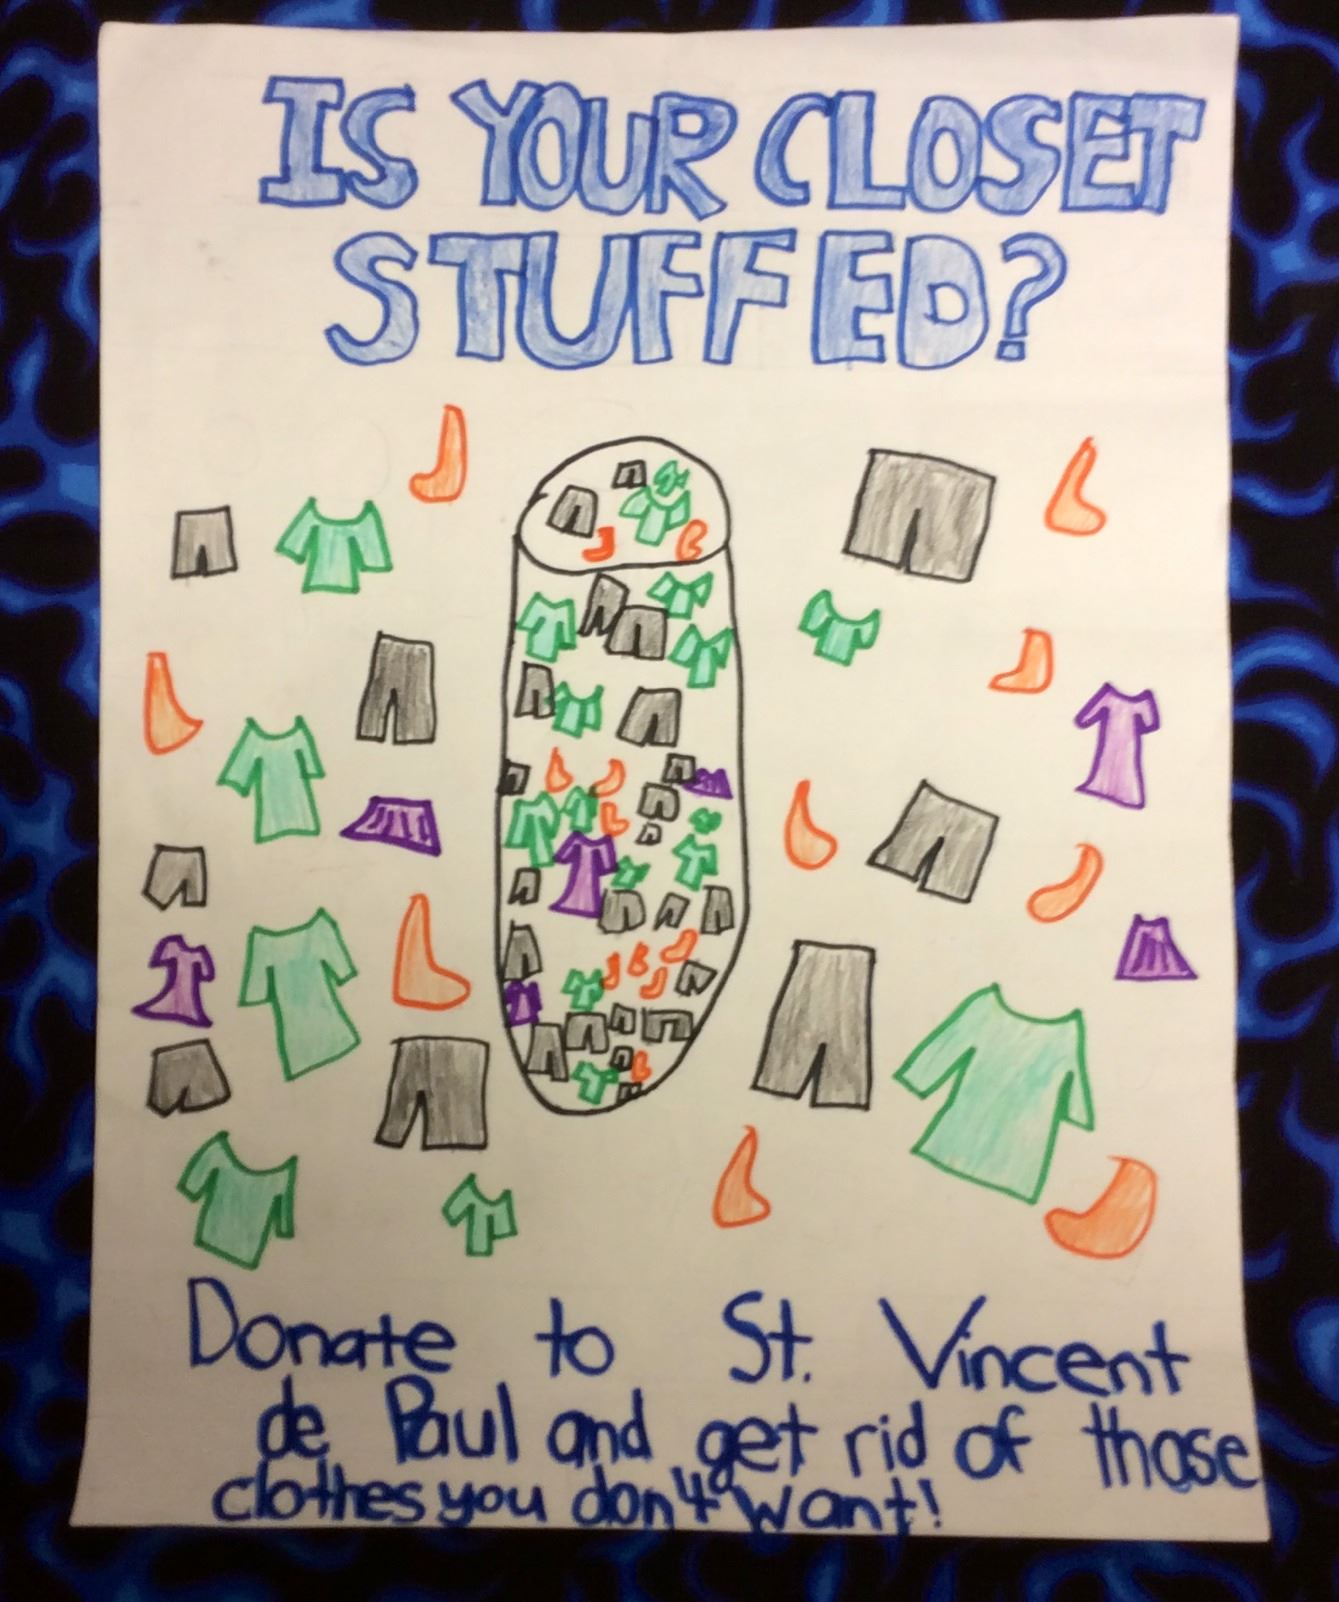 IS YOUR CLOSET
STUFFED?
Donate to St. Vincent
de Paul and get rid of those
clothes you don't want!